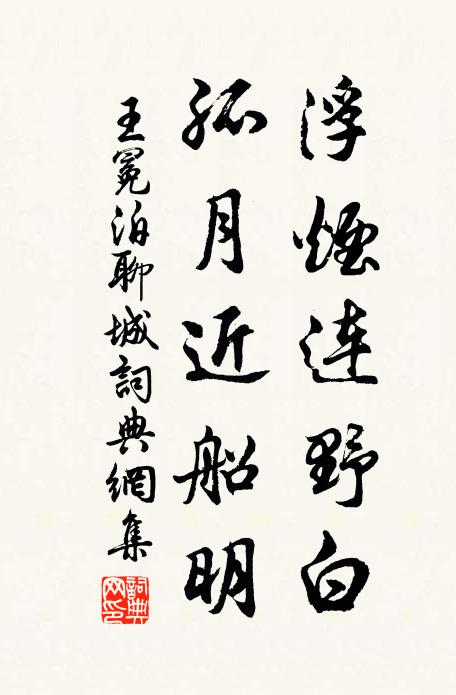 浮煙連野白
孤月近船明
王冕泊聊城詞典網集
詞典網印